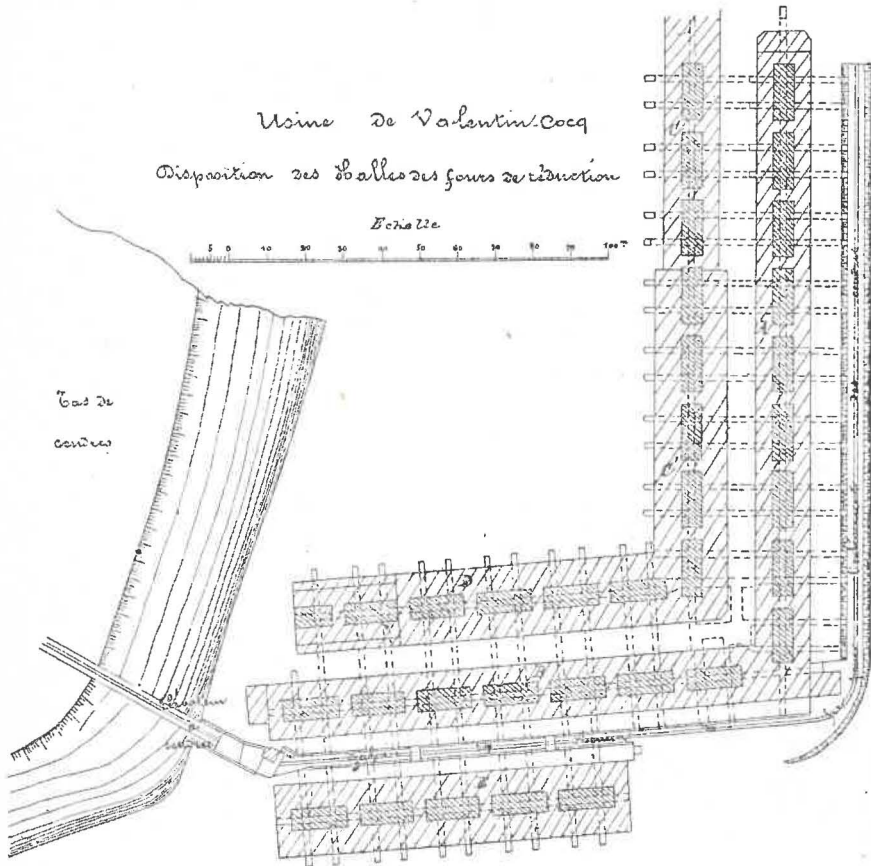 Usine de Valentin-Cocq
Disposition des Halles des fours de réduction
Echelle
5 0 10 20 30 40 50 60 70 80 90 100m
Tas de
cendres